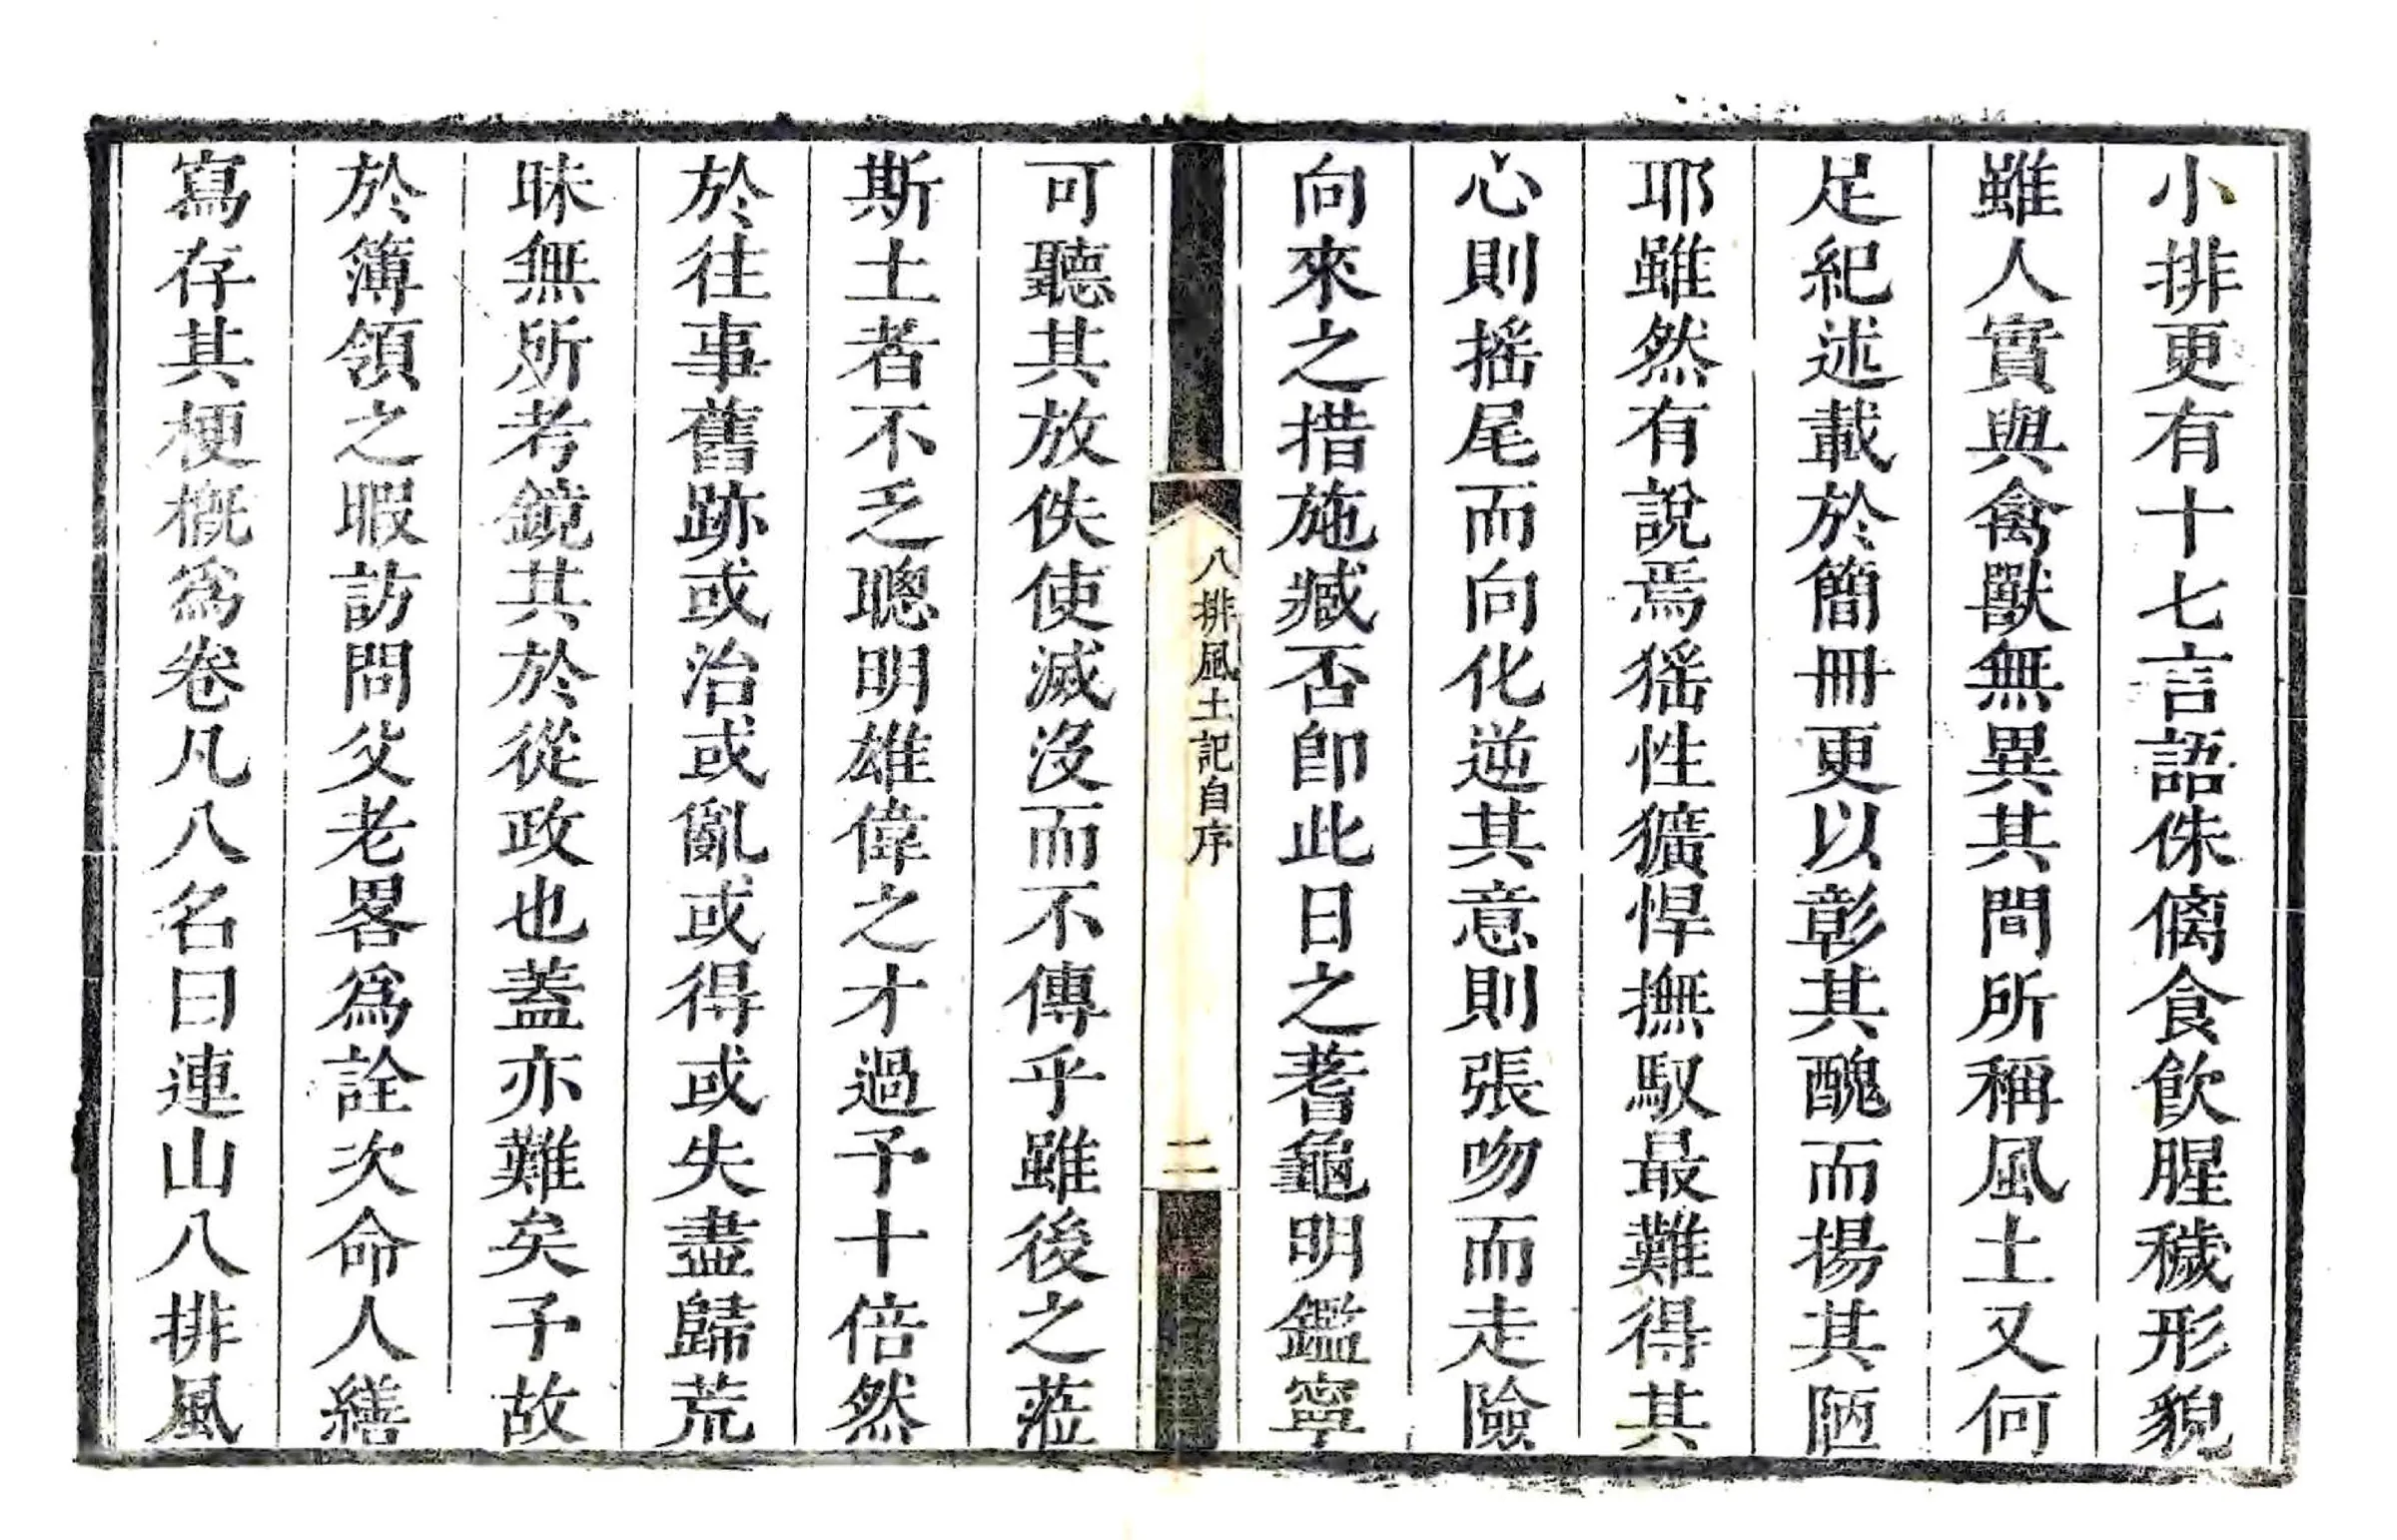 小排更有十七言語侏㒧食飲腥穢形貌
雖人實與禽獸無異其間所稱風土又何
足紀述載於簡冊更以彰其醜而揚其陋
耶雖然有說焉猺性獷悍撫馭最難得其
心則搖尾而向化逆其意則張吻而走險
向來之措施臧否卽此日之蓍龜明鑑寧
八排風土記自序
二
可聽其放佚使滅沒而不傳乎雖後之蒞
斯土者不乏聰明雄偉之才過予十倍然
於往事舊跡或治或亂或得或失盡歸荒
昧無所考鏡其於從政也蓋亦難矣予故
於簿領之暇訪問父老畧爲詮次命人繕
寫存其梗槪爲卷凡八名曰連山八排風